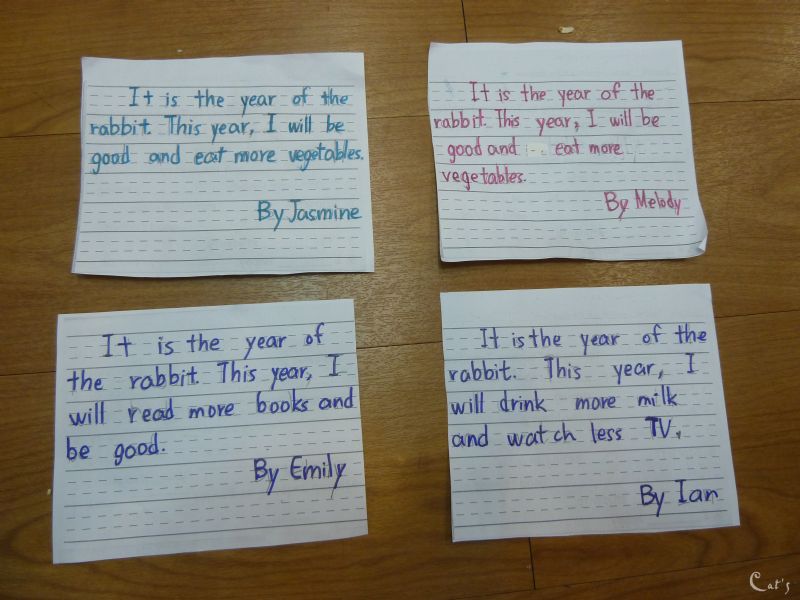 It is the year of the
rabbit. This year, I will be
good and eat more vegetables.
By Jasmine
It is the year of the
rabbit. This year, I will be
good and eat more
vegetables.
By Melody
It is the year of
the rabbit. This year, I
will read more books and
be good.
By Emily
It is the year of the
rabbit. This year, I
will drink more milk
and watch less TV.
By Ian
Cat's